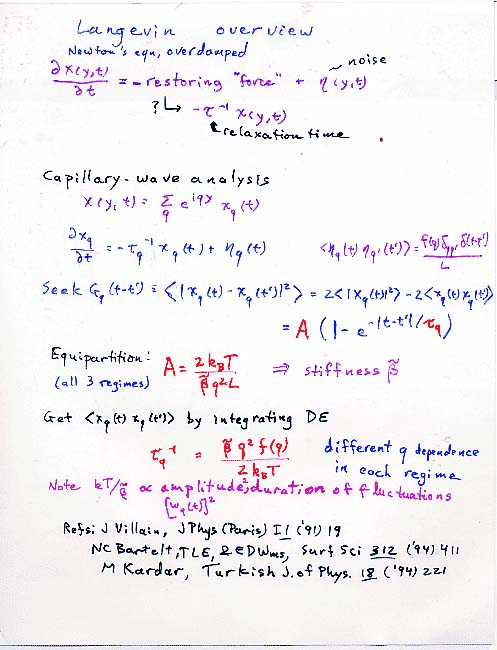 Langevin overview
Newton's eqn, overdamped
~ noise
∂x(y,t)/∂t = - restoring "force" + η(y,t)
? ↳ -τ⁻¹ x(y,t)
↑ relaxation time
Capillary-wave analysis
x(y,t) = Σ_q e^{iqy} x_q(t)
∂x_q/∂t = -τ_q⁻¹ x_q(t) + η_q(t) <η_q(t) η_q'(t')> = f(q) δ_qq' δ(t-t')/L
Seek G_q(t-t') ≡ <|x_q(t) - x_q(t')|²> = 2<|x_q(t)|²> - 2<x_q(t) x_q(t')>
= A (1 - e^{-|t-t'|/τ_q})
Equipartition: A = 2k_BT / β̃q²L ⇒ stiffness β̃
(all 3 regimes)
Get <x_q(t) x_q(t')> by integrating DE
τ_q⁻¹ = β̃ q² f(q) / 2k_BT different q dependence
in each regime
Note kT/β̃ ∝ amplitude², duration of fluctuations
[w_q(t)]²
Refs: J Villain, J Phys (Paris) I1 ('91) 19
NC Bartelt, TLE, & EDWms, Surf Sci 312 ('94) 411
M Kardar, Turkish J. of Phys. 18 ('94) 221